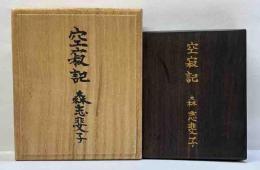 空寂記
森志斐子
空寂記
森志斐子